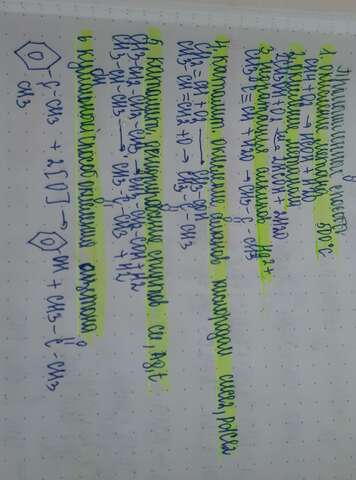 Промышленные способы
1. окисление метана 500°C
CH4 + O2 → HCOH + H2O
2. окисление метанола
2CH3OH + O2 → 2HCOH + 2H2O
3. гидратация алкинов Hg2+
CH3-C≡CH + H2O → CH3-C-CH3
O
4. каталит. окисление алкенов кислородом CuCl2, PdCl2
CH2=CH2 + O → CH3-COH
CH3-CH=CH2 + O → CH3-C-CH3
O
5. каталитич. дегидрирование спиртов Cu, Ag, t
CH3-CH2-CH2-OH → CH3-CH2-COH + H2
CH3-CH-CH3 → CH3-C-CH3 + H2
OH O
6. кумольный способ получения ацетона
CH3-C-CH3 + 2[O] → OH + CH3-C-CH3
O